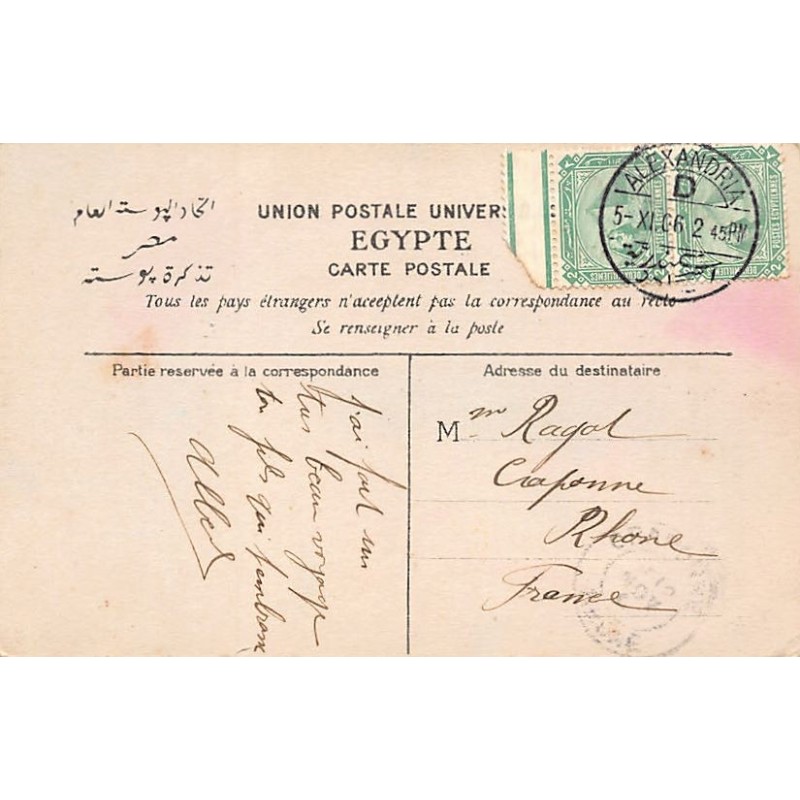 اتحاد البوسته العام
مصر
تذكرة بوسته
UNION POSTALE UNIVER
EGYPTE
CARTE POSTALE
Tous les pays étrangers n'acceptent pas la correspondance au recto
Se renseigner à la poste
ALEXANDRIA
D
5-XI.06 2 45PM
POSTES EGYPTIENNES
Partie reservée à la correspondance
j'ai fait un
tres beau voyage
ton fils qui t'embrasse
Albert
Adresse du destinataire
Mm Ragot
Craponne
Rhone
France